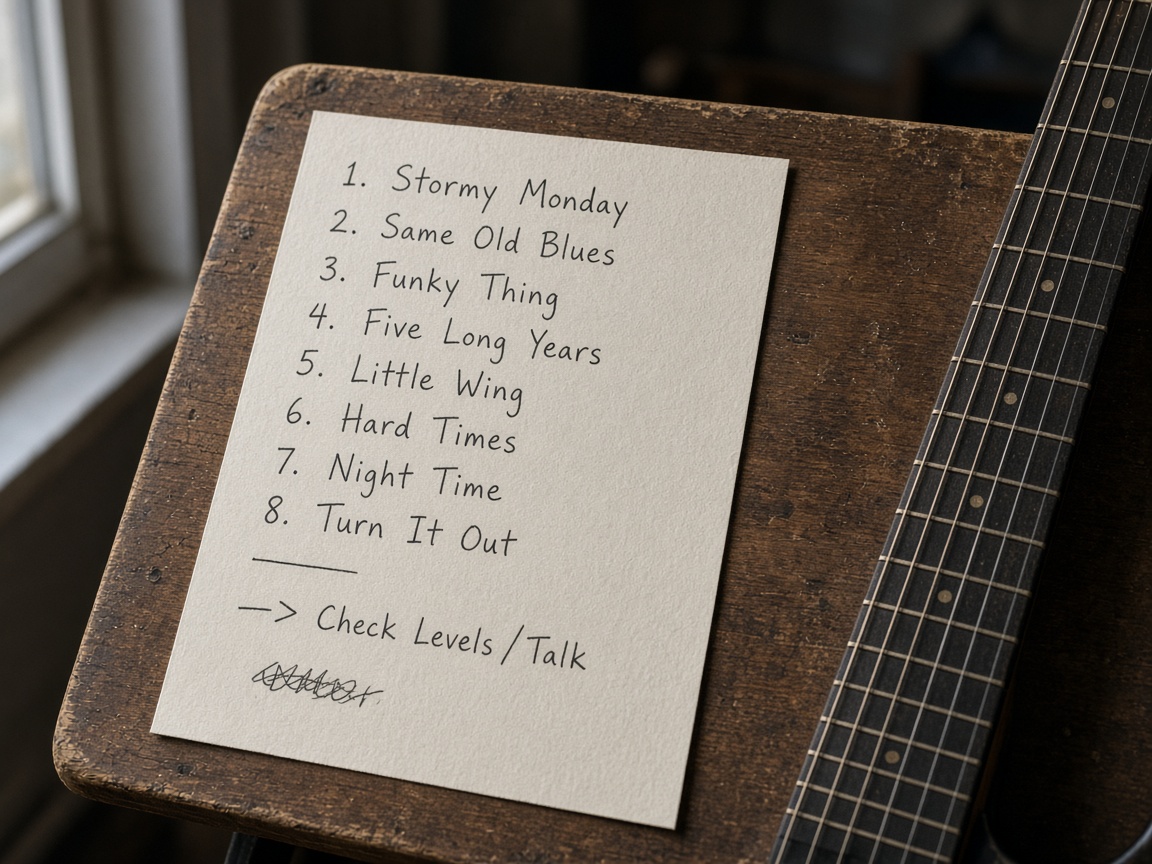 1. Stormy Monday
2. Same Old Blues
3. Funky Thing
4. Five Long Years
5. Little Wing
6. Hard Times
7. Night Time
8. Turn It Out
—> Check Levels / Talk